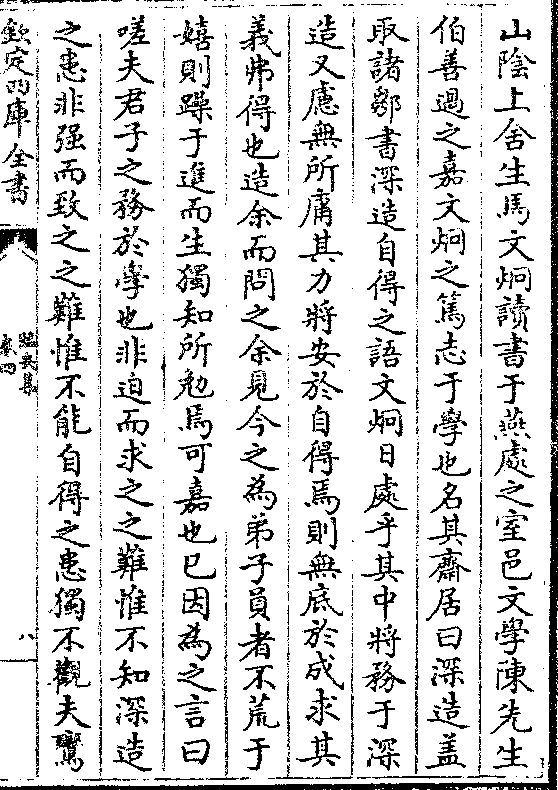 山陰上舍生馬文炯讀書于燕處之室邑文學陳先生
伯善過之嘉文炯之篤志于學也名其齋居曰深造蓋
取諸鄒書深造自得之語文炯日處乎其中將務于深
造又慮無所庸其力將安於自得焉則無底於成求其
義弗得也造余而問之余見今之為弟子員者不荒于
嬉則躁于進而生獨知所勉焉可嘉也已因為之言曰
嗟夫君子之務於學也非迫而求之之難惟不知深造
之患非强而致之之難惟不能自得之患獨不觀夫鸞
欽定四庫全書
卷四
八